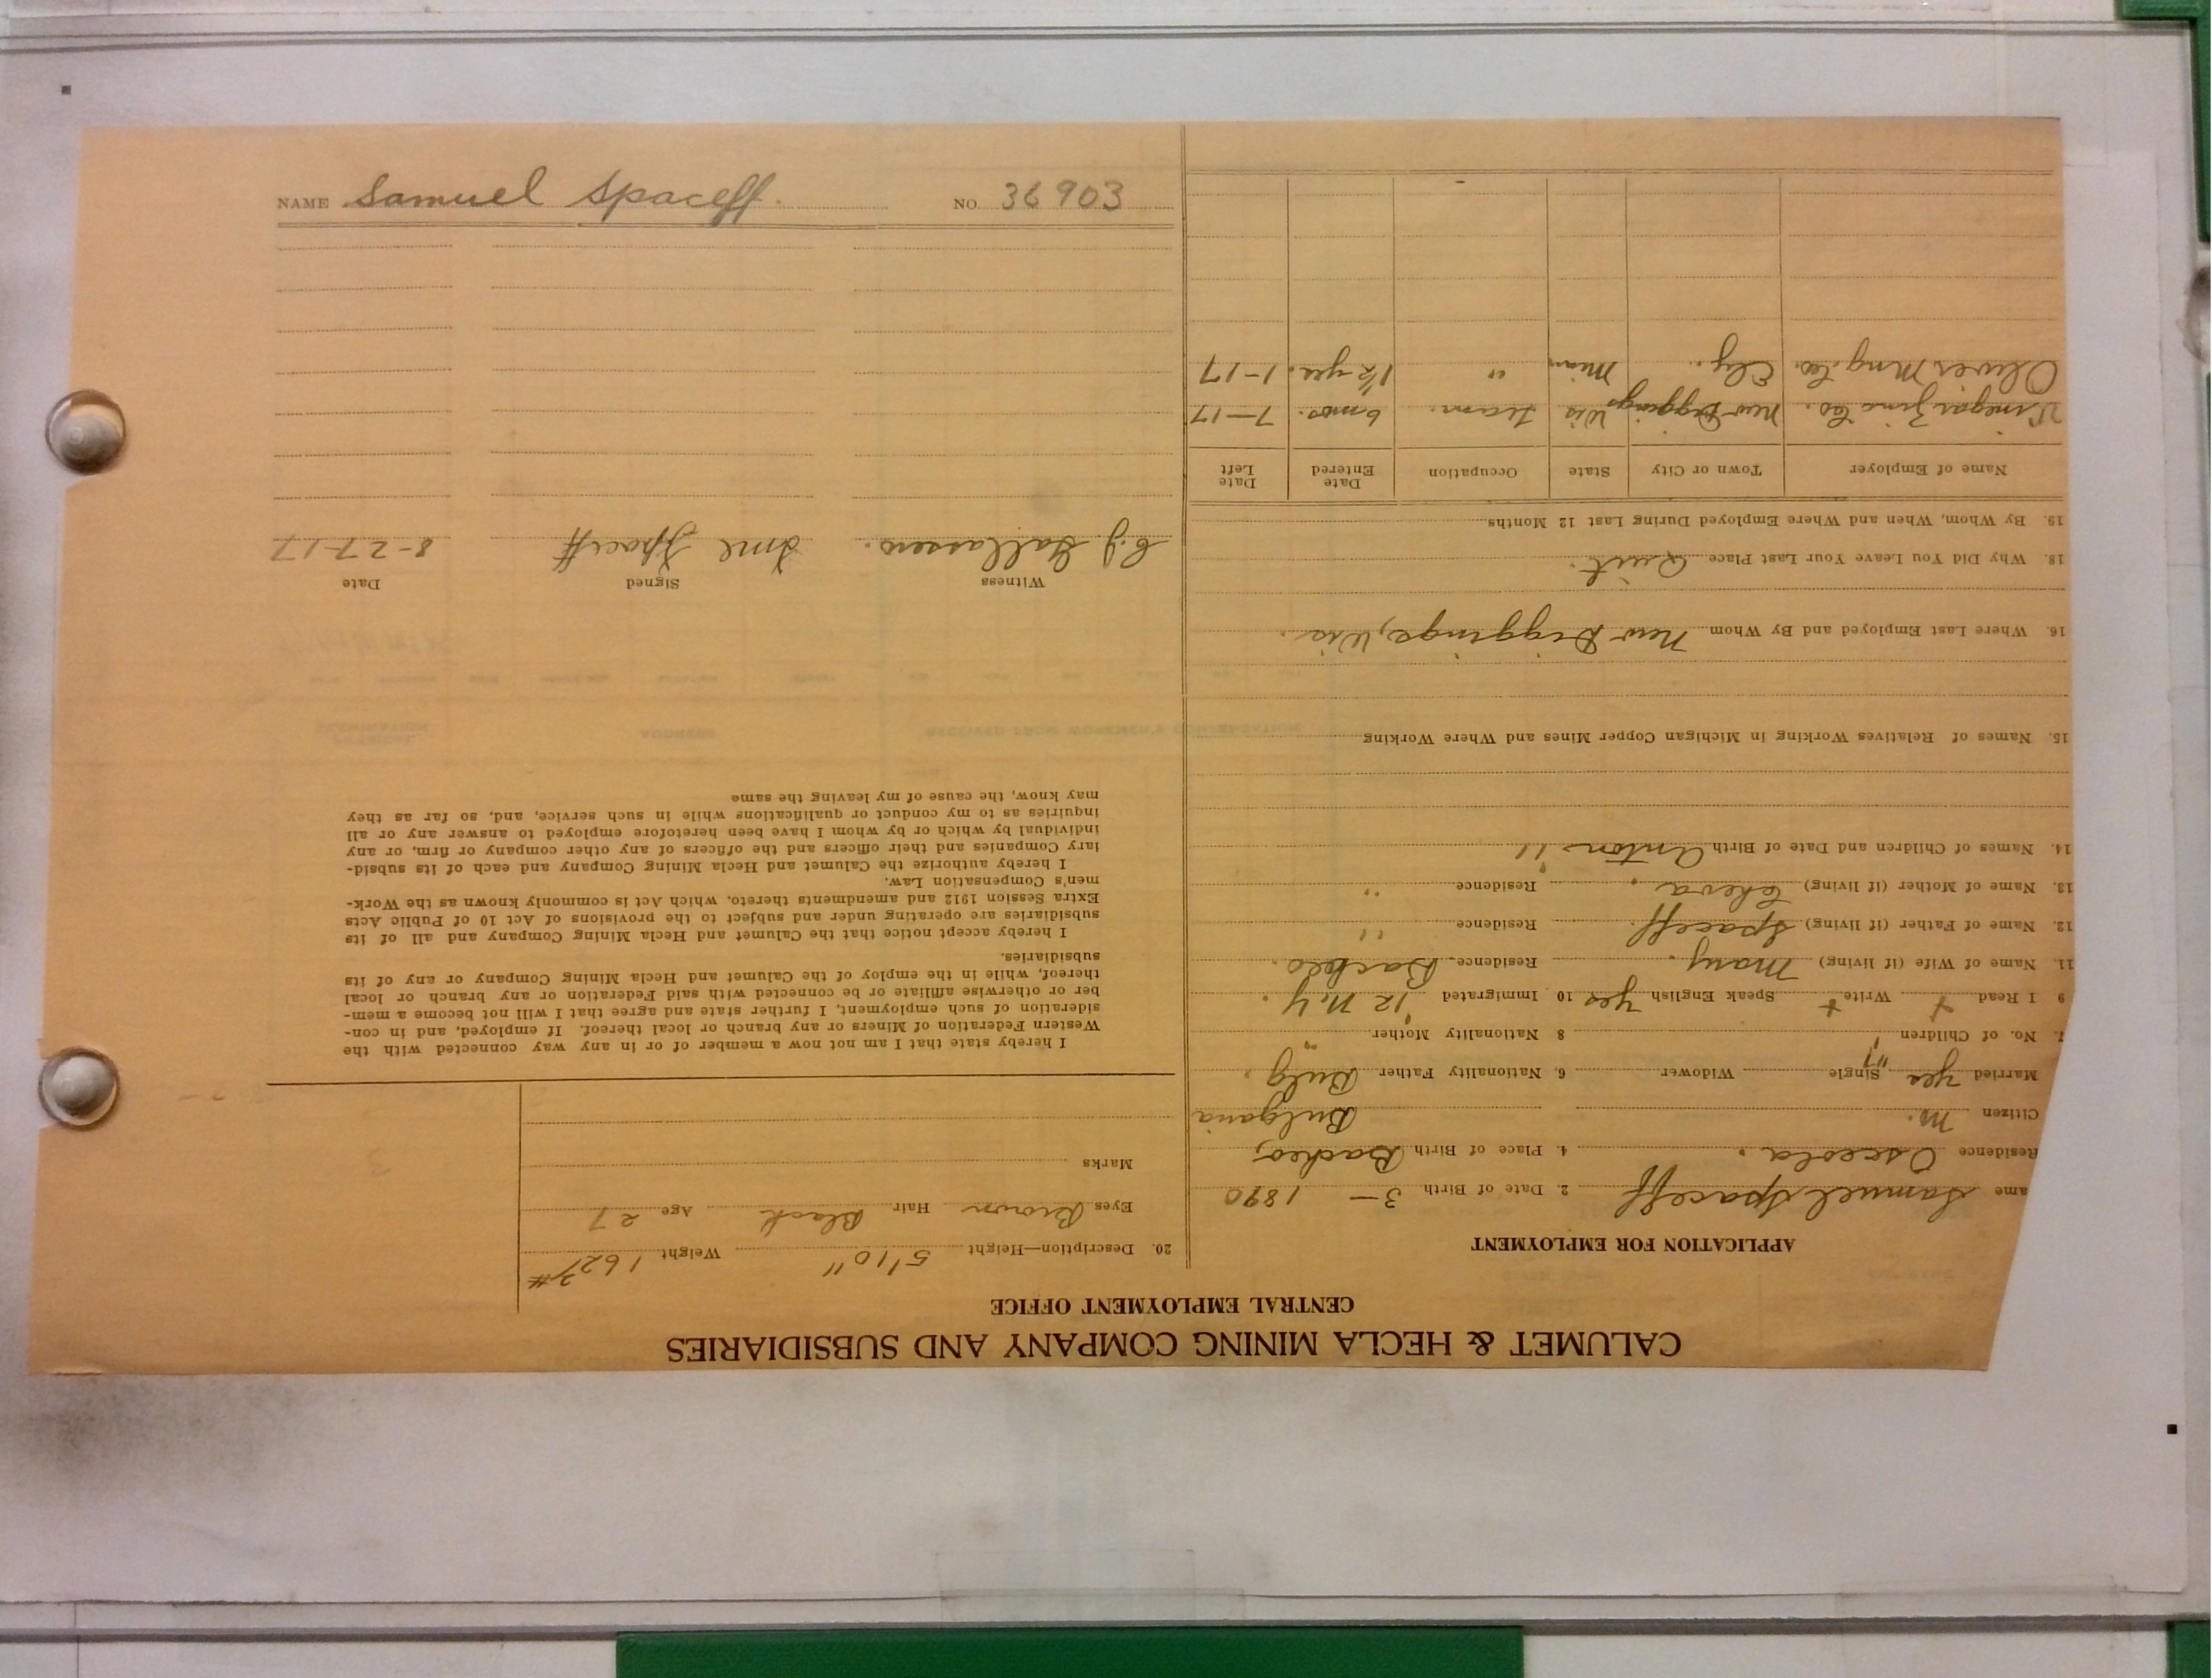 NAME Samuel Spaceff. NO. 36903
CALUMET & HECLA MINING COMPANY AND SUBSIDIARIES
CENTRAL EMPLOYMENT OFFICE
APPLICATION FOR EMPLOYMENT
ame Samuel Spaceff 2. Date of Birth 3 — 1890
Residence Osceola. 4. Place of Birth
Citizen Bulgaria
Married Yes Single Widower 6. Nationality Father Bulg.
7. No. of Children 1 8 Nationality Mother "
9 I Read + Write + Speak English Yes 10 Immigrated '12 N.Y.
11. Name of Wife (if living) Mary. Residence
12. Name of Father (if living) Spaceff. Residence "
13. Name of Mother (if living) Residence "
14. Names of Children and Date of Birth Anton - '11
15. Names of Relatives Working in Michigan Copper Mines and Where Working
16. Where Last Employed and By Whom New Diggings, Wis.
18. Why Did You Leave Your Last Place Quit.
19. By Whom, When and Where Employed During Last 12 Months
Name of Employer Town or City State Occupation Date Entered Date Left
Vinegar Zinc Co. New Diggings Wis Tram. 6 mos. 7-17
Oliver Mng. Co. Ely. Minn " 1½ yrs. 1-17
20. Description—Height 5'10" Weight 162#
Eyes Brown Hair Black Age 27
Marks
I hereby state that I am not now a member of or in any way connected with the
Western Federation of Miners or any branch or local thereof. If employed, and in con-
sideration of such employment, I further state and agree that I will not become a mem-
ber or otherwise affiliate or be connected with said Federation or any branch or local
thereof, while in the employ of the Calumet and Hecla Mining Company or any of its
subsidiaries.
I hereby accept notice that the Calumet and Hecla Mining Company and all of its
subsidiaries are operating under and subject to the provisions of Act 10 of Public Acts
Extra Session 1912 and amendments thereto, which Act is commonly known as the Work-
men's Compensation Law.
I hereby authorize the Calumet and Hecla Mining Company and each of its subsid-
iary Companies and their officers and the officers of any other company or firm, or any
individual by which or by whom I have been heretofore employed to answer any or all
inquiries as to my conduct or qualifications while in such service, and, so far as they
may know, the cause of my leaving the same
Witness Signed Date
C.J. Spaceff 8-27-17